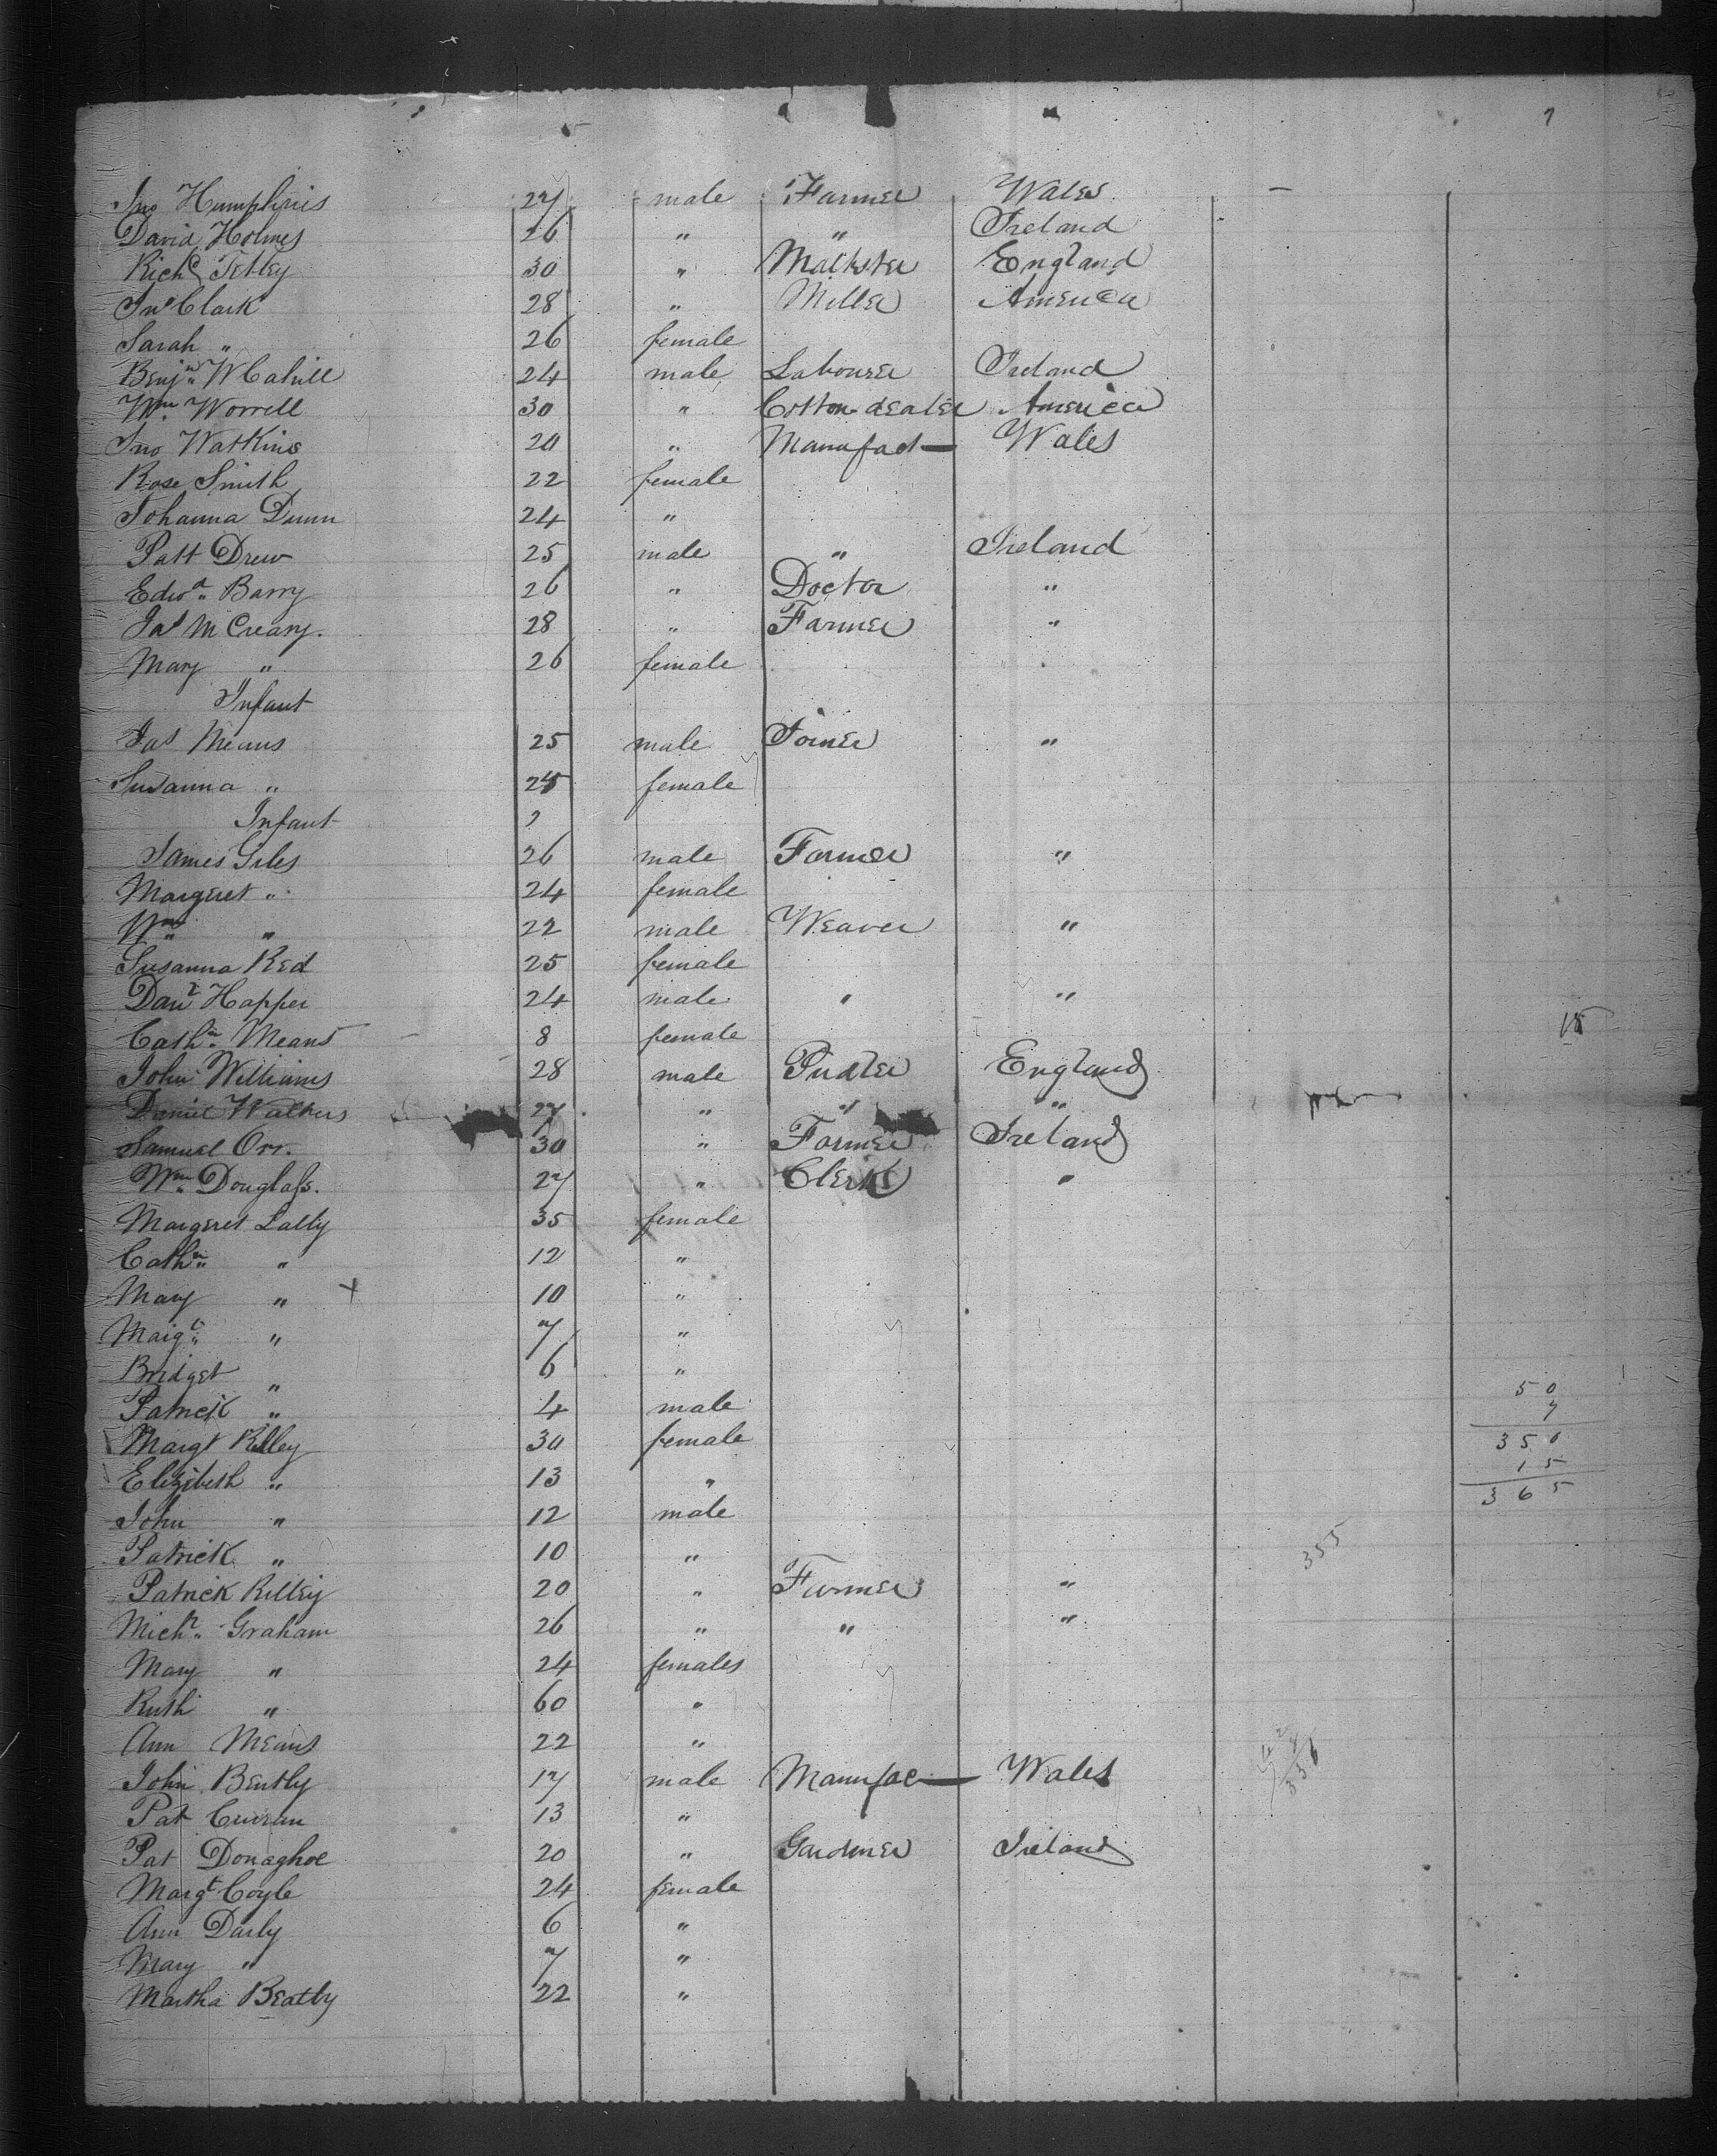 7
Jno Humphries 27 male Farmer Wales –
David Holmes 26 " " Ireland
Richd Tetley 30 " Maltster England
Jno Clark 28 " Miller America
Sarah " 26 female
Benjn W Cahill 24 male Labourer Ireland
Wm Worrell 30 " Cotton dealer America
Jno Watkins 20 " Manufact— Wales
Rose Smith 22 female
Johanna Dunn 24 "
Patt Drew 25 male " Ireland
Edwd Barry 26 " Doctor "
Jas McCreary. 28 " Farmer "
Mary " 26 female
Infant
Jas Means 25 male Joiner "
Susanna " 25 female
Infant
James Giles 26 male Farmer "
Margeret " 24 female
Wm " 22 male Weaver "
Susanna Red 25 female
Danl Happer 24 male " "
Cathn Means 8 female 15
John Williams 28 male Pudler England
Daniel Walkers 27 " " "
Samuel Orr. 30 " Farmer Ireland
Wm Douglass. 27 " Clerk "
Margeret Lally 35 female
Cathn " 12 "
Mary " + 10 "
Margt " 7 "
Bridget " 6 "
Patrick " 4 male 50 7
Margt Rilley 30 female 350
Elizibeth " 13 " 15 365
John " 12 male
Patrick " 10 " 355
Patrick Rilley 20 " Farmer "
Michl Graham 26 " " "
Mary " 24 females
Ruth " 60 "
Ann Means 22 "
John Bently 17 male Manufac— Wales 336
Pat Curran 13 "
Pat Donaghoe 20 " Gardener Ireland
Margt Coyle 24 female
Ann Darly 6 "
Mary " 7 "
Martha Beatty 22 "